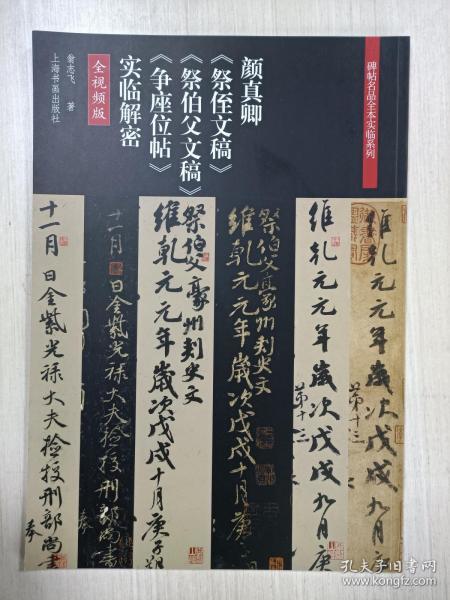 碑帖名品全本实临系列
颜真卿
《祭侄文稿》
《祭伯父文稿》
《争座位帖》
实临解密
全视频版
翁志飞 著
上海书画出版社
维乾元元年岁次戊戌九月庚
第十三
维乾元元年岁次戊戌九月庚
第十三
祭伯父豪州刺史文
维乾元元年岁次戊戌十月庚
祭伯父豪州刺史文
维乾元元年岁次戊戌十月庚子朔
十一月 日金紫光禄大夫检校刑部尚书
十一月 日金紫光禄大夫检校刑部尚书
孔夫子旧书网